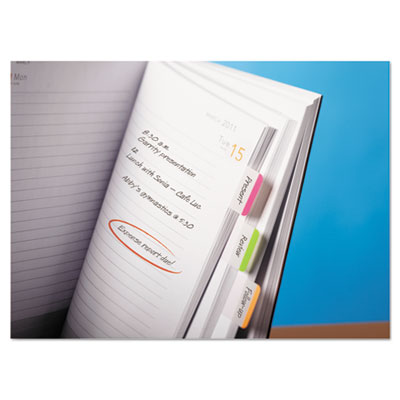 Mon
2011
Tue 15
8:30 a.m.
Garrity presentation
12
Lunch with Sonia – Cafe Luc
Abby's gymnastics @ 5:30
Expense report due!
Present
Review
Follow-up